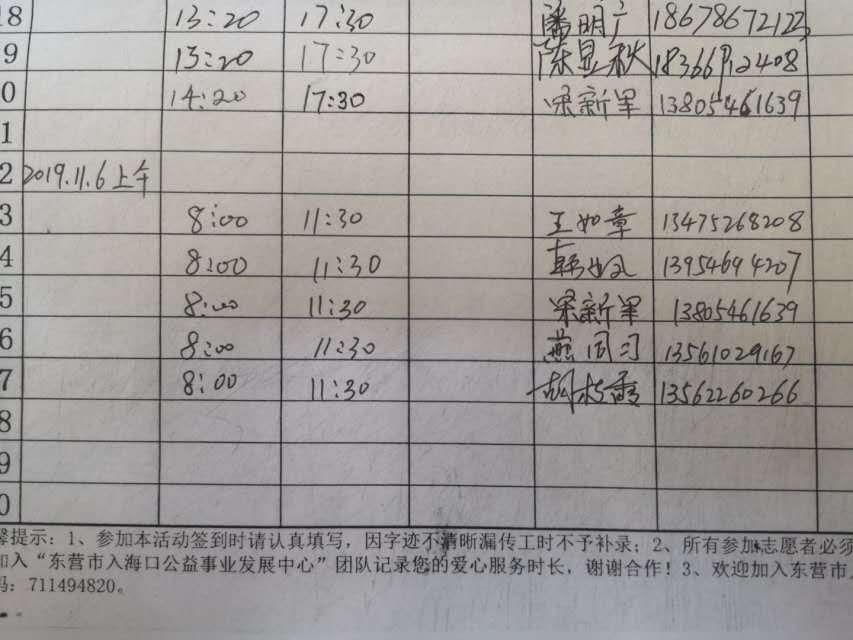 18 13:20 17:30 潘明广 18678672123
9 13:20 17:30 陈显秋 18366912408
0 14:20 17:30 梁新军 13805461639
1
2 2019.11.6上午
3 8:00 11:30 王如章 13475268208
4 8:00 11:30 13954694207
5 8:00 11:30 梁新军 13805461639
6 8:00 11:30 燕同习 13561029167
7 8:00 11:30 胡枝霞 13562260266
8
9
0
馨提示：1、参加本活动签到时请认真填写，因字迹不清晰漏传工时不予补录；2、所有参加志愿者必须
加入“东营市入海口公益事业发展中心”团队记录您的爱心服务时长，谢谢合作！3、欢迎加入东营市
码：711494820。